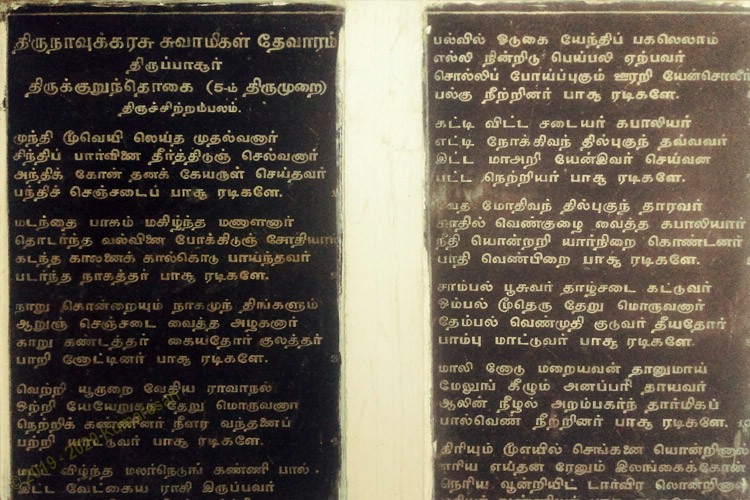 திருநாவுக்கரசு சுவாமிகள் தேவாரம்
திருப்பாசூர்
திருக்குறுந்தொகை (5-ம் திருமுறை)
திருச்சிற்றம்பலம்.
முந்தி மூவெயி லெய்த முதல்வனார்
சிந்திப் பார்வினை தீர்த்திடுஞ் செல்வனார்
அந்திக் கோன் தனக் கேயருள் செய்தவர்
பந்திச் செஞ்சடைப் பாசூ ரடிகளே.
மடந்தை பாகம் மகிழ்ந்த மணாளனார்
தொடர்ந்த வல்வினை போக்கிடுஞ் சோதியார்
கடந்த காலனைக் கால்கொடு பாய்ந்தவர்
படர்ந்த நாகத்தர் பாசூ ரடிகளே.
நாறு கொன்றையும் நாகமுந் திங்களும்
ஆறுஞ் செஞ்சடை வைத்த அழகனார்
காறு கண்டத்தர் கையதோர் சூலத்தர்
பாறி னோட்டினர் பாசூ ரடிகளே.
வெற்றி யூருறை வேதிய ராவர்நல்
ஒற்றி யேறுகந் தேறு மொருவனார்
நெற்றிக் கண்ணினர் நீளர வந்தனைப்
பற்றி யாட்டுவர் பாசூ ரடிகளே.
விழ்ந்த மலர்நெடுங் கண்ணி பால்
இட்ட வேட்கைய ராகி இருப்பவர்
பல்லில் ஓடுகை யேந்திப் பகலெலாம்
எல்லி நின்றிடு பெய்பலி ஏற்பவர்
சொல்லிப் போய்ப்புகும் ஊரறி யேன்சொலீர்
பல்கு நீற்றினர் பாசூ ரடிகளே.
கட்டி விட்ட சடையர் கபாலியர்
எட்டி நோக்கிவந் தில்புகுந் தவ்வவர்
இட்ட மாஅறி யேன்இவர் செய்வன
பட்ட நெற்றியர் பாசூ ரடிகளே.
வேத மோதிவந் தில்புகுந் தாரவர்
காதில் வெண்குழை வைத்த கபாலியார்
நீதி யொன்றறி யார்நிறை கொண்டனர்
பாதி வெண்பிறை பாசூ ரடிகளே.
சாம்பல் பூசுவர் தாழ்சடை கட்டுவர்
ஓம்பல் மூதெரு தேறு மொருவனார்
தேம்பல் வெண்மதி சூடுவர் தீயதோர்
பாம்பு மாட்டுவர் பாசூ ரடிகளே.
மாலி னோடு மறையவன் தானுமாய்
மேலுங் கீழும் அளப்பரி தாயவர்
ஆலின் நீழல் அறம்பகர்ந் தார்மிகப்
பால்வெண் நீற்றினர் பாசூ ரடிகளே.
திரியும் மூஎயில் செங்கணை யொன்றினால்
எரிய எய்தன ரேனும் இலங்கைக்கோன்
நெரிய வூன்றியிட் டார்விர லொன்றினால்